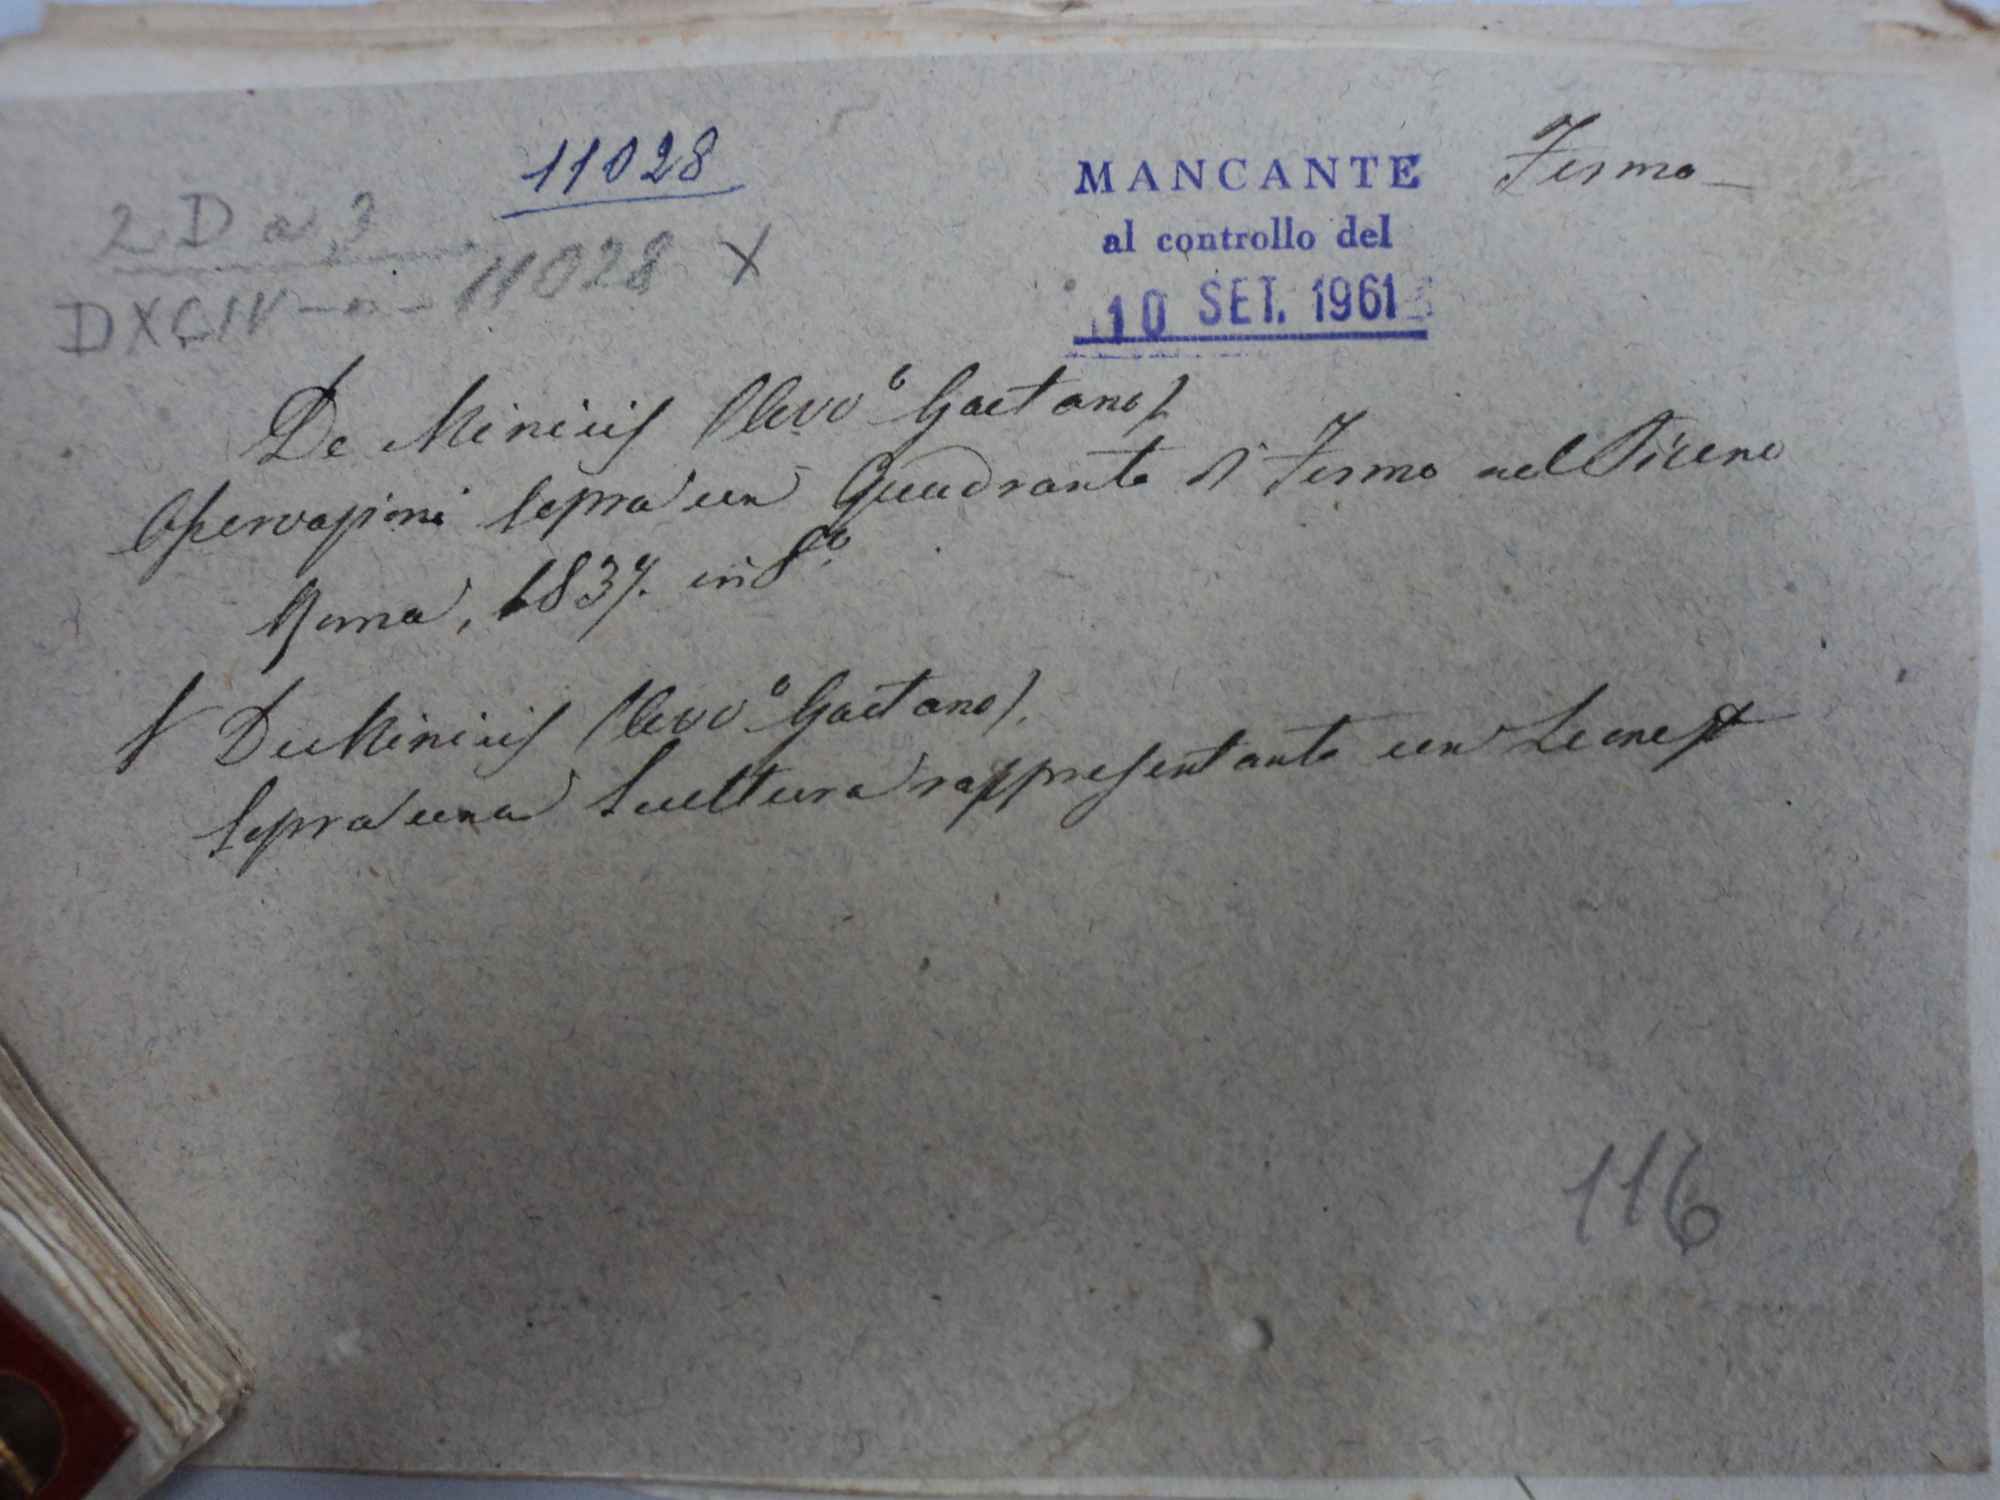 11028
MANCANTE
al controllo del
10 SET. 1961
Fermo
2 D a 3
DXCIV - n - 11028 X
De Minicis (Avvo Gaetano)
Osservazioni sopra un Quadrante di Fermo nel Piceno
Roma, 1837. in 8o
De Minicis (Avvo Gaetano).
Sopra una Scultura rappresentante un Leone
116